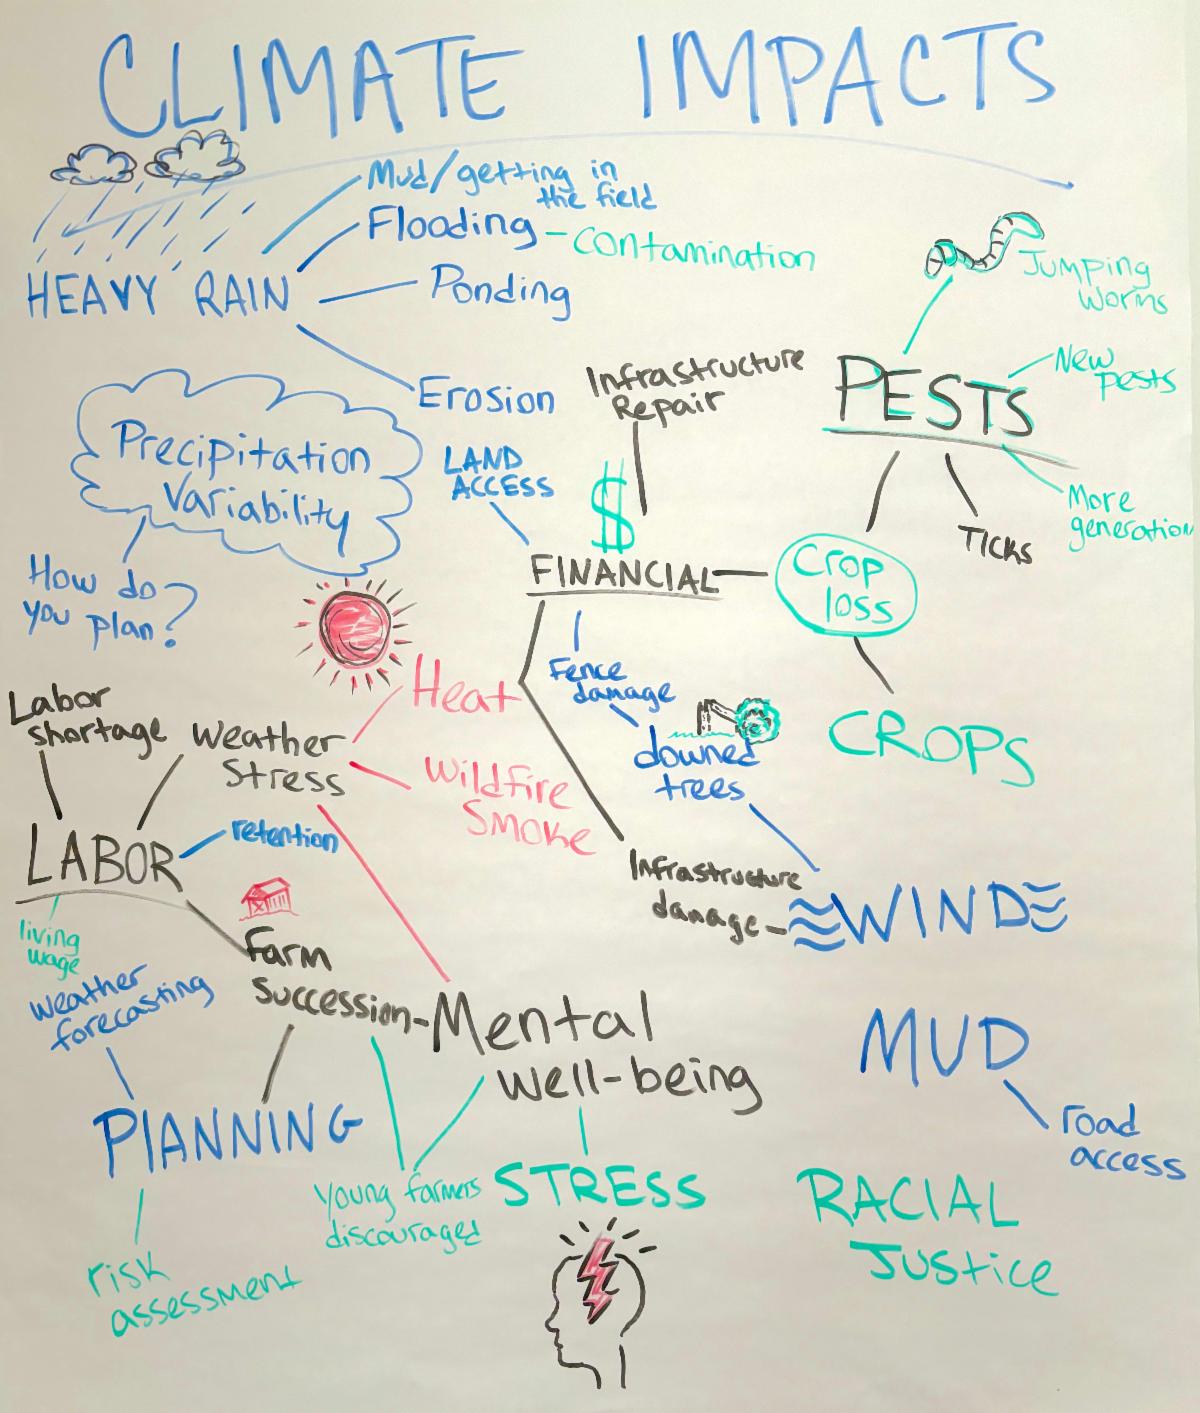 CLIMATE IMPACTS
Mud/getting in
the field
Flooding - Contamination
HEAVY RAIN
Ponding
Erosion
Jumping
Worms
PESTS
New
pests
More
generation
TICKS
Infrastructure
Repair
Precipitation
Variability
How do
you plan?
LAND
ACCESS
$
FINANCIAL
Crop
loss
CROPS
Fence
damage
downed
trees
Heat
Wildfire
Smoke
Labor
shortage
Weather
Stress
LABOR
retention
living
wage
Infrastructure
damage
WIND
Farm
Succession
Mental
well-being
weather
forecasting
PLANNING
risk
assessment
young farmers
discouraged
STRESS
MUD
road
access
RACIAL
Justice